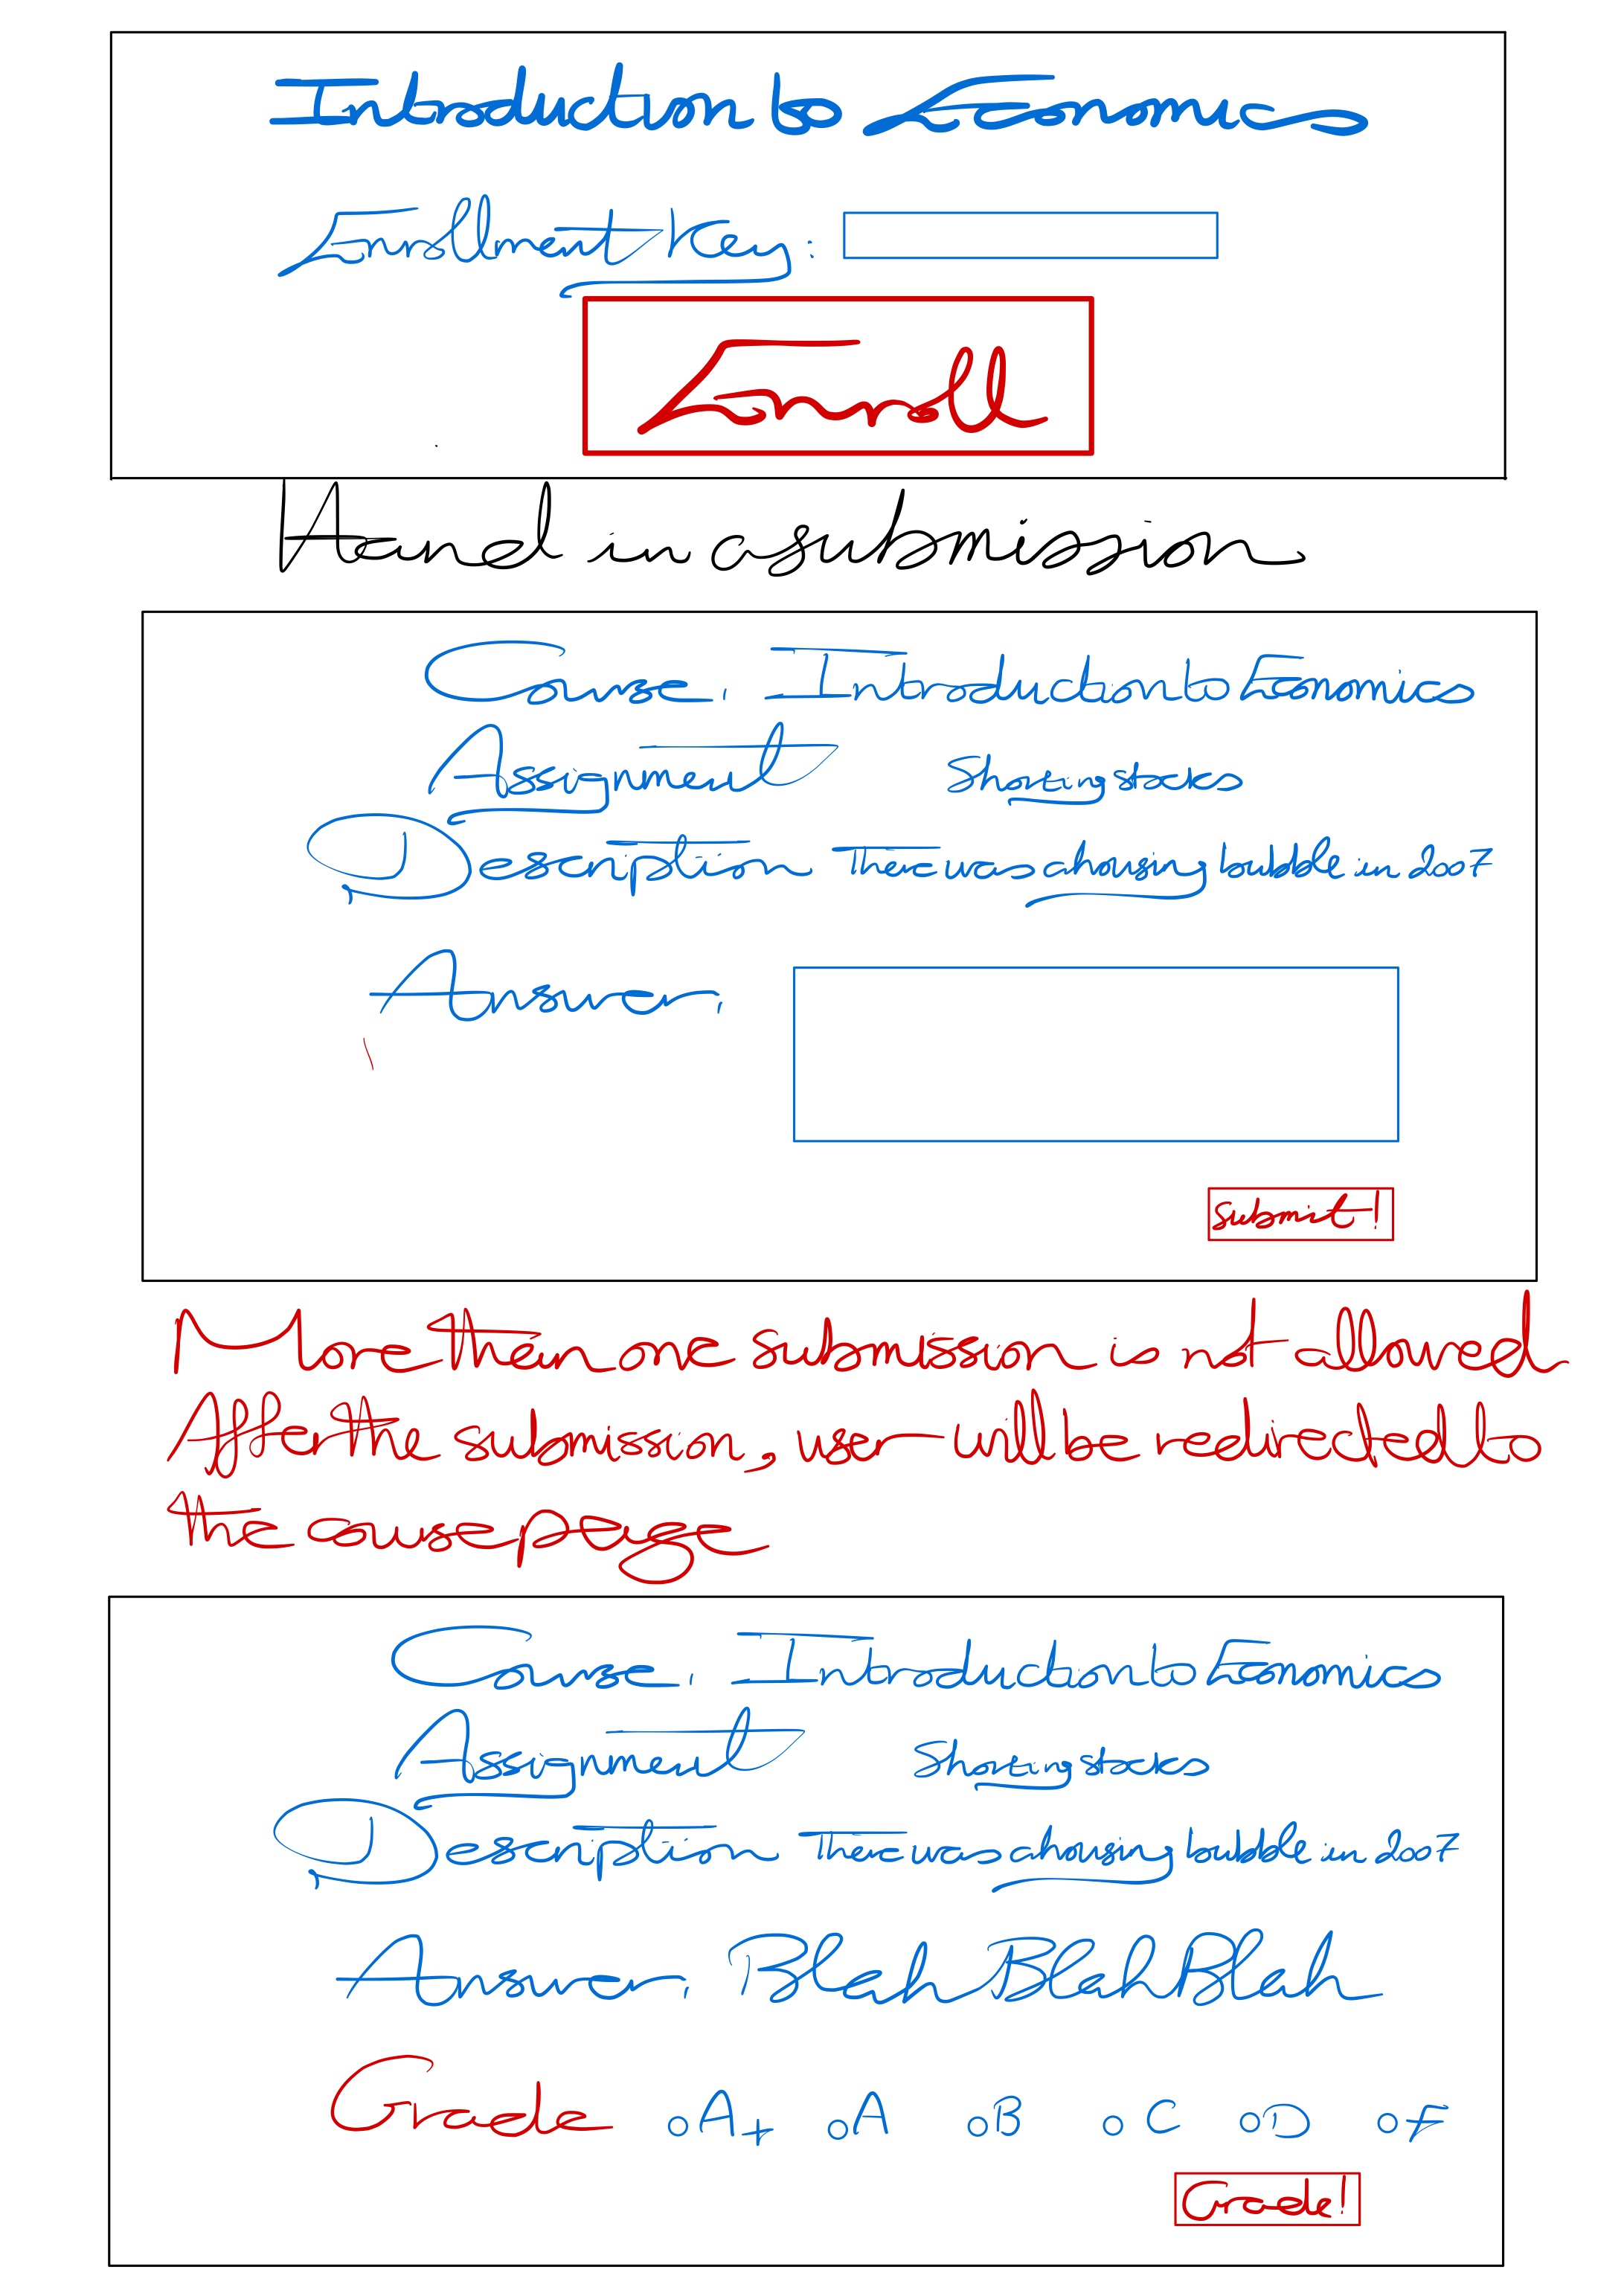 Introduction to Economics
Enrollment Key:
Enroll
Hand in a submission
Course. Introduction to Economics
Assignment Shorting stocks
Description There was a housing bubble in 2007
Answer.
Submit!
More than one submission is not allowed
After the submission, user will be redirected to
the couse page
Course. Introduction to Economics
Assignment Shorting stocks
Description There was a housing bubble in 2007
Answer. Blah Blah Blah
Grade A+ A B C D F
Grade!